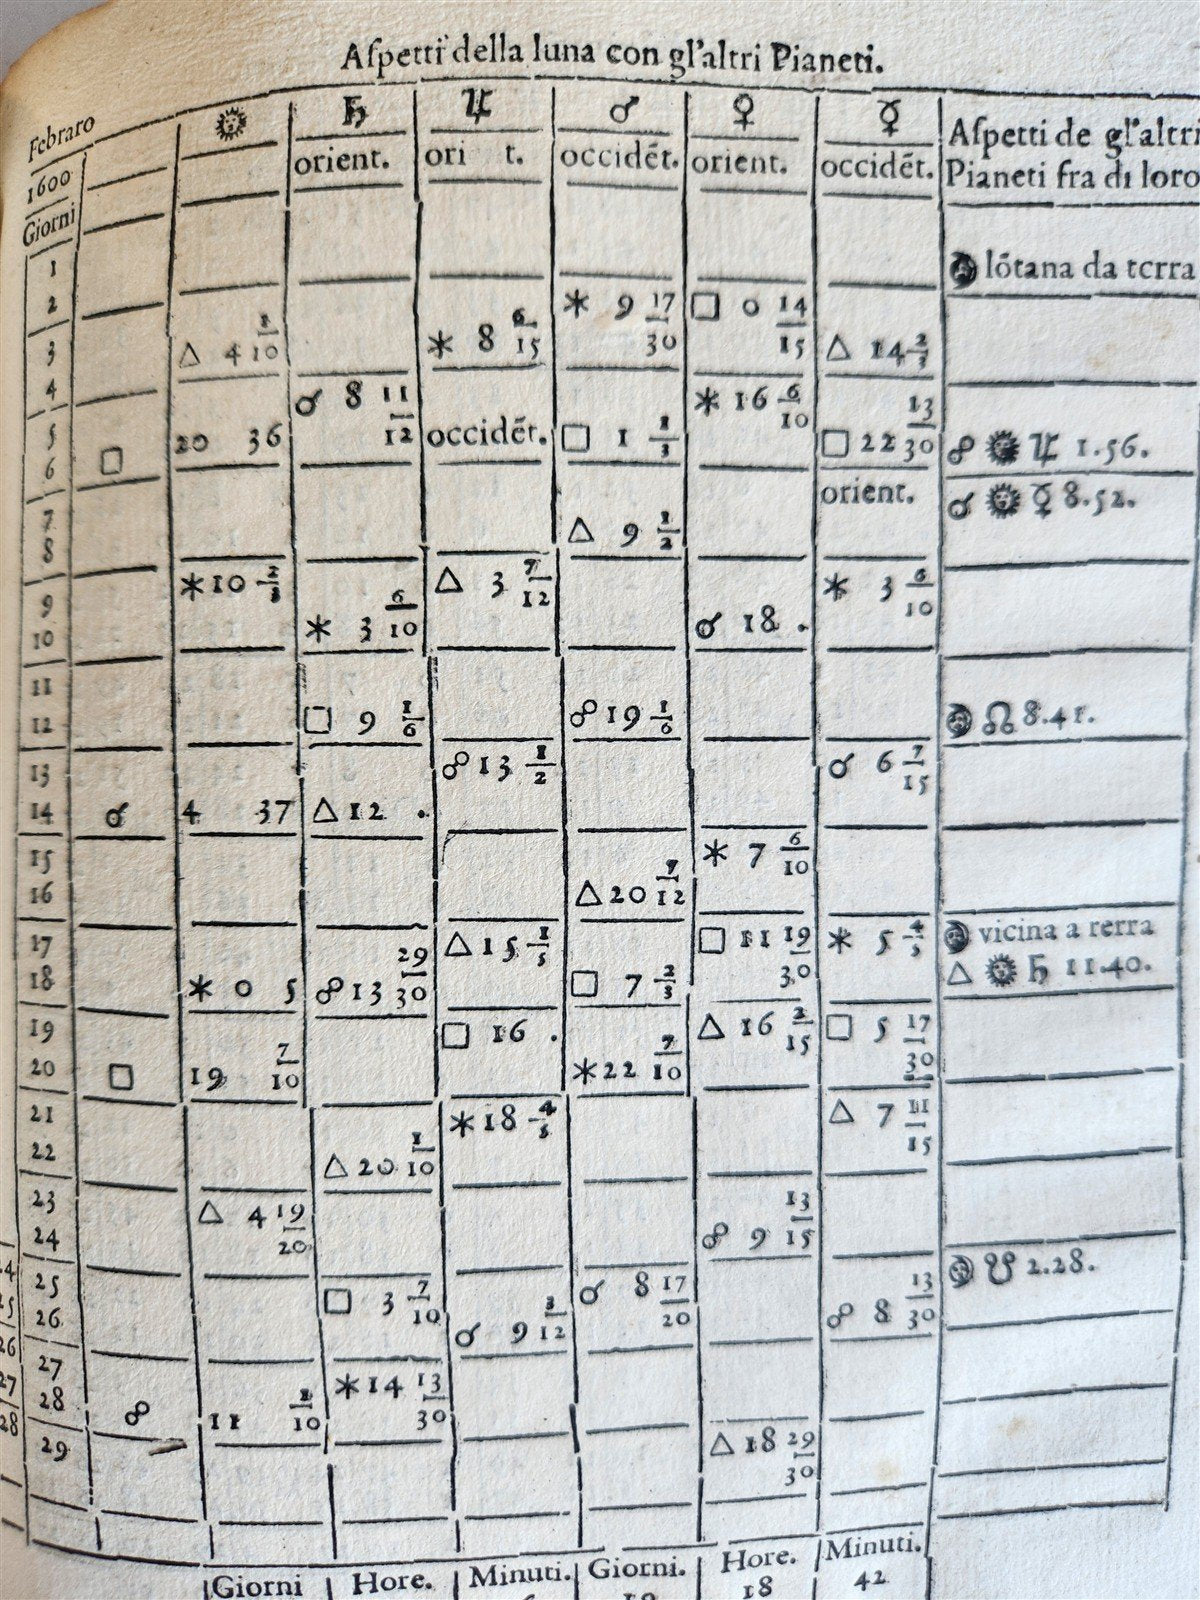 Aſpetti della luna con gl'altri Pianeti.
Febraro 1600 Giorni ☉ ♄ orient. ♃ ori t. ♂ occidēt. ♀ orient. ☿ occidēt. Aſpetti de gl'altri
Pianeti fra di loro
1 ☽ lōtana da terra
2 ⚹ 9 17/30 □ 0 14/15
3 △ 4 1/10 ⚹ 8 6/15 △ 14 2/3
4 ☌ 8 11/12 ⚹ 16 6/10
5 □ 20 36 occidēt. □ 1 1/3 □ 22 13/30 ☍ ☉ ♃ 1.56.
6 orient. ☌ ☉ ☿ 8.52.
7 △ 9 1/2
8
9 ⚹ 10 2/3 △ 3 7/12 ⚹ 3 6/10
10 ⚹ 3 6/10 ☌ 18 .
11
12 □ 9 1/6 ☍ 19 1/6 ☽ ☊ 8.41.
13 ☍ 13 1/2 ☌ 6 7/15
14 ☌ 4 37 △ 12 .
15 ⚹ 7 6/10
16 △ 20 7/12
17 △ 15 1/5 □ 11 19/30 ⚹ 5 4/5 ☽ vicina a rerra
18 ⚹ 0 5 ☍ 13 29/30 □ 7 2/3 △ ☉ ♄ 11.40.
19 □ 16 . △ 16 2/15 □ 5 17/30
20 □ 19 7/10 ⚹ 22 7/10
21 ⚹ 18 4/5 △ 7 11/15
22 △ 20 1/10
23 △ 4 19/20
24 ☍ 9 13/15
25 □ 3 7/10 ☌ 8 17/20 ☽ ☋ 2.28.
26 ☌ 9 /12 ☍ 8 13/30
27
28 ☍ 11 1/10 ⚹ 14 13/30
29 △ 18 29/30
Giorni Hore. Minuti. Giorni. Hore. Minuti.
18 42